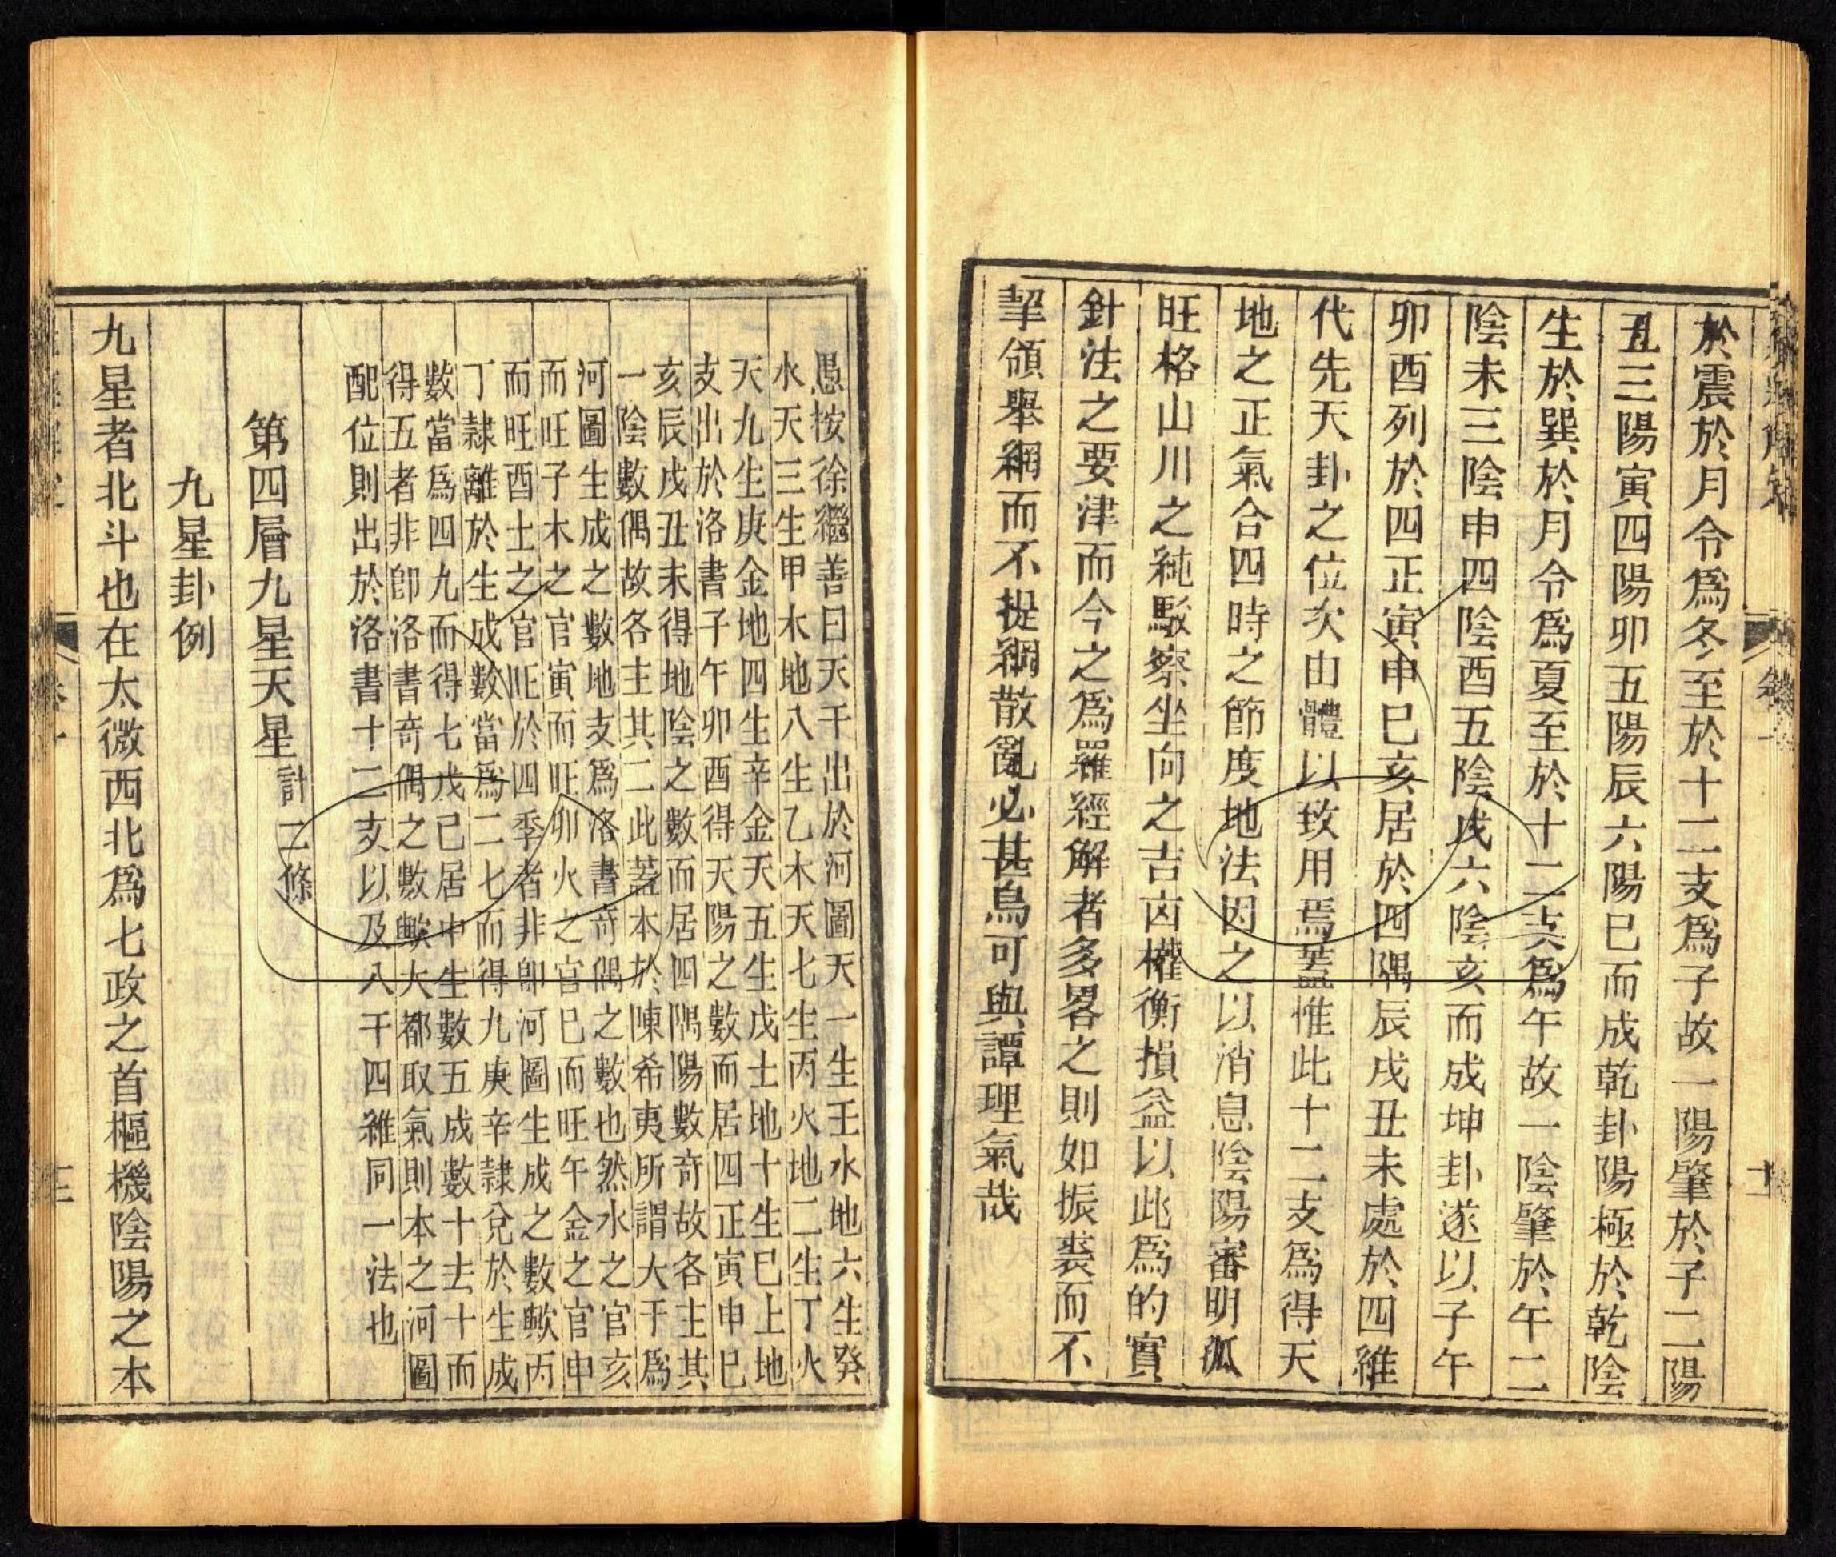 於震於月令爲冬至於十二支爲子故一陽肇於子二陽
丑三陽寅四陽卯五陽辰六陽巳而成乾卦陽極於乾陰
生於巽於月令爲夏至於十二支爲午故一陰肇於午二
陰未三陰申四陰酉五陰戌六陰亥而成坤卦遂以子午
卯酉列於四正寅申巳亥居於四隅辰戌丑未處於四維
代先天卦之位次由體以致用焉蓋惟此十二支爲得天
地之正氣合四時之節度地法因之以消息陰陽審明孤
旺格山川之純駁察坐向之吉凶權衡損益以此爲的實
針法之要津而今之爲羅經解者多畧之則如振裘而不
挈領舉網而不提綱散亂必甚烏可與譚理氣哉
愚按徐繼善曰天干出於河圖天一生壬水地六生癸
水天三生甲木地八生乙木天七生丙火地二生丁火
天九生庚金地四生辛金天五生戊土地十生巳土地
支出於洛書子午卯酉得天陽之數而居四正寅申巳
亥辰戌丑未得地陰之數而居四隅陽數奇故各主其
一陰數偶故各主其二此蓋本於陳希夷所謂大干爲
河圖生成之數地支爲洛書奇偶之數也然水之官亥
而旺子木之官寅而旺卯火之官巳而旺午金之官申
而旺酉土之官旺於四季者非卽河圖生成之數歟丙
丁隷離於生成數當爲二七而得九庚辛隷兌於生成
數當爲四九而得七戊己居中生數五成數十去十而
得五者非卽洛書奇偶之數歟大都取氣則本之河圖
配位則出於洛書十二支以及八干四維同一法也
第四層九星天星計二條
九星卦例
九星者北斗也在太微西北爲七政之首樞機陰陽之本